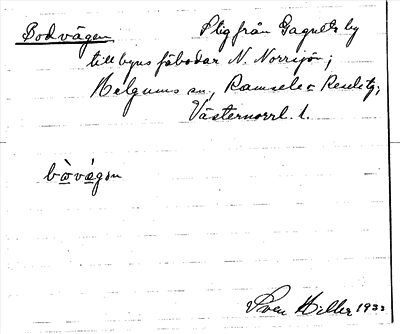 Bodvägen Stig från Gagnets by
till byns fäbodar N. Norrsjön;
Helgums sn, Ramsele o Resele tg;
Västernorrl. l.
bòvégen
Sven Hiller 1933